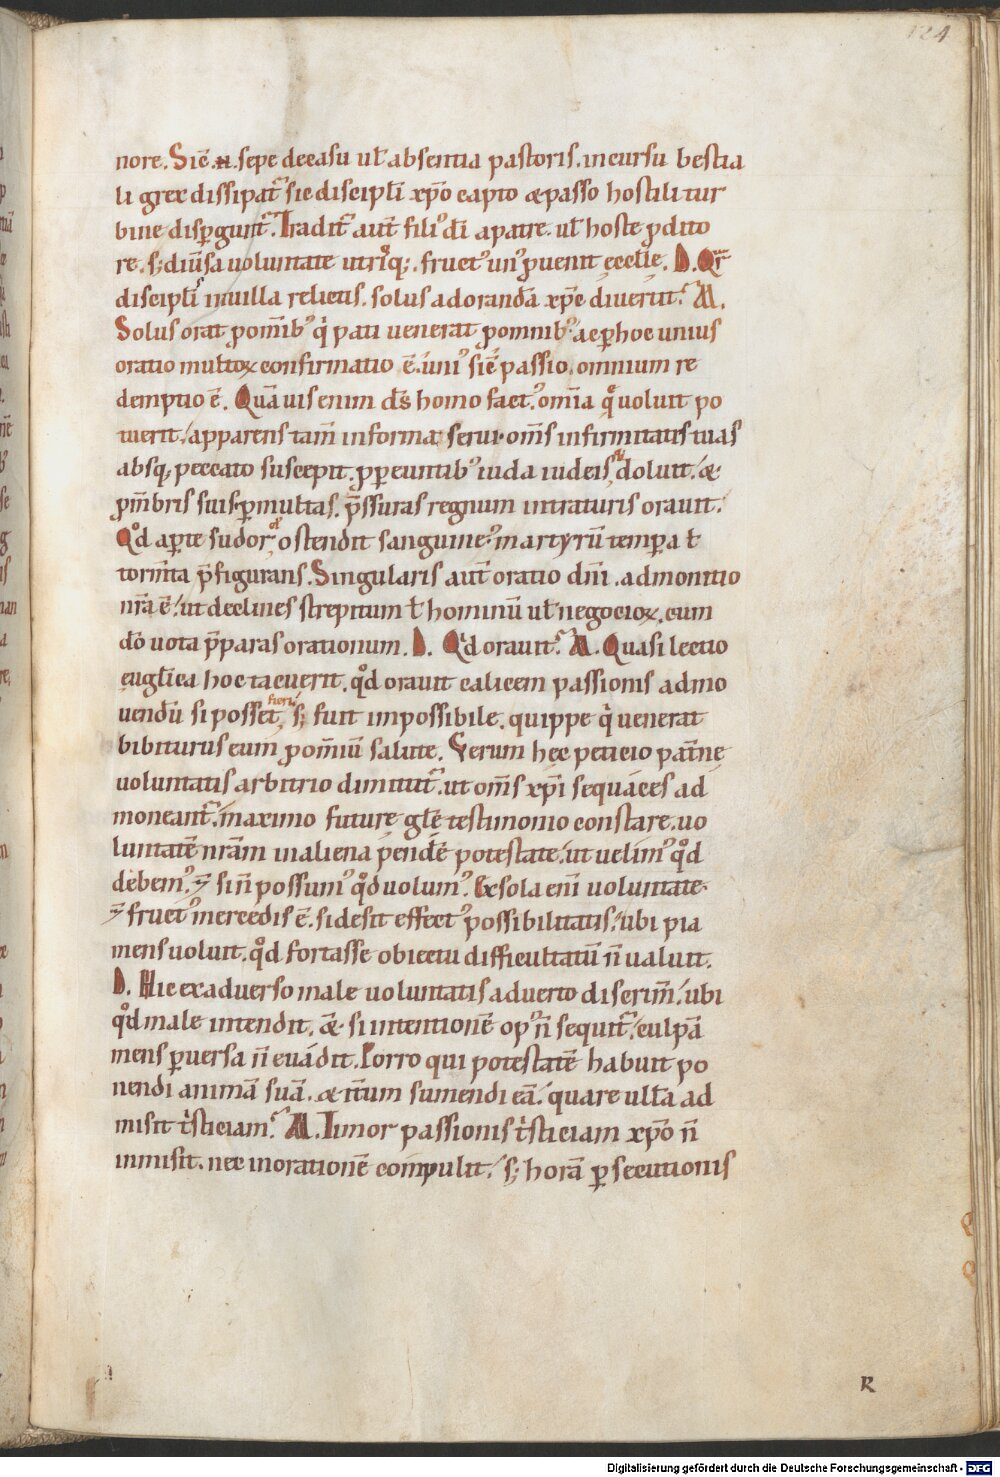 124
nore. Sic̄ .n. sepe decasu ul̄ absentia pastoris. incursu bestia
li grex dissipat᷑ sic discipl̄i xp̄o capto ⁊passo hostili tur
bine disꝑgunt᷑. Tradit᷑ aut̄ filiꝰ d̄i apatre. ul̄ hoste ꝓdito
re. s; diūsa uoluntate utriq;. fructꝰ unꝰ ꝓuenit eccl̄ie. D. Qͬ
discipl̄is inuilla relictis. solus adorandā xp̄c diuertit. M.
Solus orat ꝓom̄ibꝰ qͥ pati uenerat ꝓomnibꝰ. ac ꝑ hoc unius
oratio multoꝝ confirmatio ē. uniꝰ sic̄ passio omnium re
demptio ē. Quāuis enim d̄s homo factꝰ. om̄ia q̊ uoluit po
tuerit. apparens tam̄ informa serui. om̄s infirmitatis tuas
absq; peccato suscepit. ꝓpereuntibꝰ iuda iudeis doluit. ⁊
ꝓm̄bris suis ꝑmultas p̄ssuras regnum intraturis orauit.
Qd̊ aꝑte sudor ostendit sanguineꝰ martyrū tempora ł
torm̄ta p̄figurans. Singularis aut̄ oratio dn̄i. admonitio
nr̄a ē. ut declines strepitum ł hominū ul̄ negocioꝝ. cum
d̄o uota p̄paras orationum. D. Qͥd orauit. M. Quasi lectio
eugl̄ica hoc tacuerit. qd̊ orauit calicem passionis admo
uendū si posset fieri s; fuit impossibile. quippe qͥ uenerat
bibiturus eum ꝓom̄iū salute. Verum hec peticio pat̄ne
uoluntatis arbitrio dimittit᷑. ut om̄s xp̄i sequaces ad
moneant᷑. maximo future gl̄e testimonio constare. uo
luntatē nr̄am inaliena pendē potestate. ut uelimꝰ qd̊
debemꝰ. ⁊ si n̄ possumꝰ qd̊ uolumꝰ. Ex sola eni uoluntate.
⁊ fructꝰ mercedis ē. si desit effectꝰ possibilitatis. ubi pia
mens uoluit. qd̊ fortasse obiectu difficultatū n̄ ualuit.
D. Hic exaduerso male uoluntatis aduerto discrim̄. ubi
qd̊ male intendit. ⁊ si intentionē opꝰ n̄ sequit᷑. culpā
mens ꝑuersa n̄ euadit. Porro qui potestatē habuit po
nendi animā suā. ⁊ it̄um sumendi eā. quare ull̄a ad
misit tͥsticiam. M. Timor passionis tͥsticiam xp̄o n̄
inmisit. nec inorationē compulit. s; horā ꝑsecutionis
R
Digitalisierung gefördert durch die Deutsche Forschungsgemeinschaft - DFG